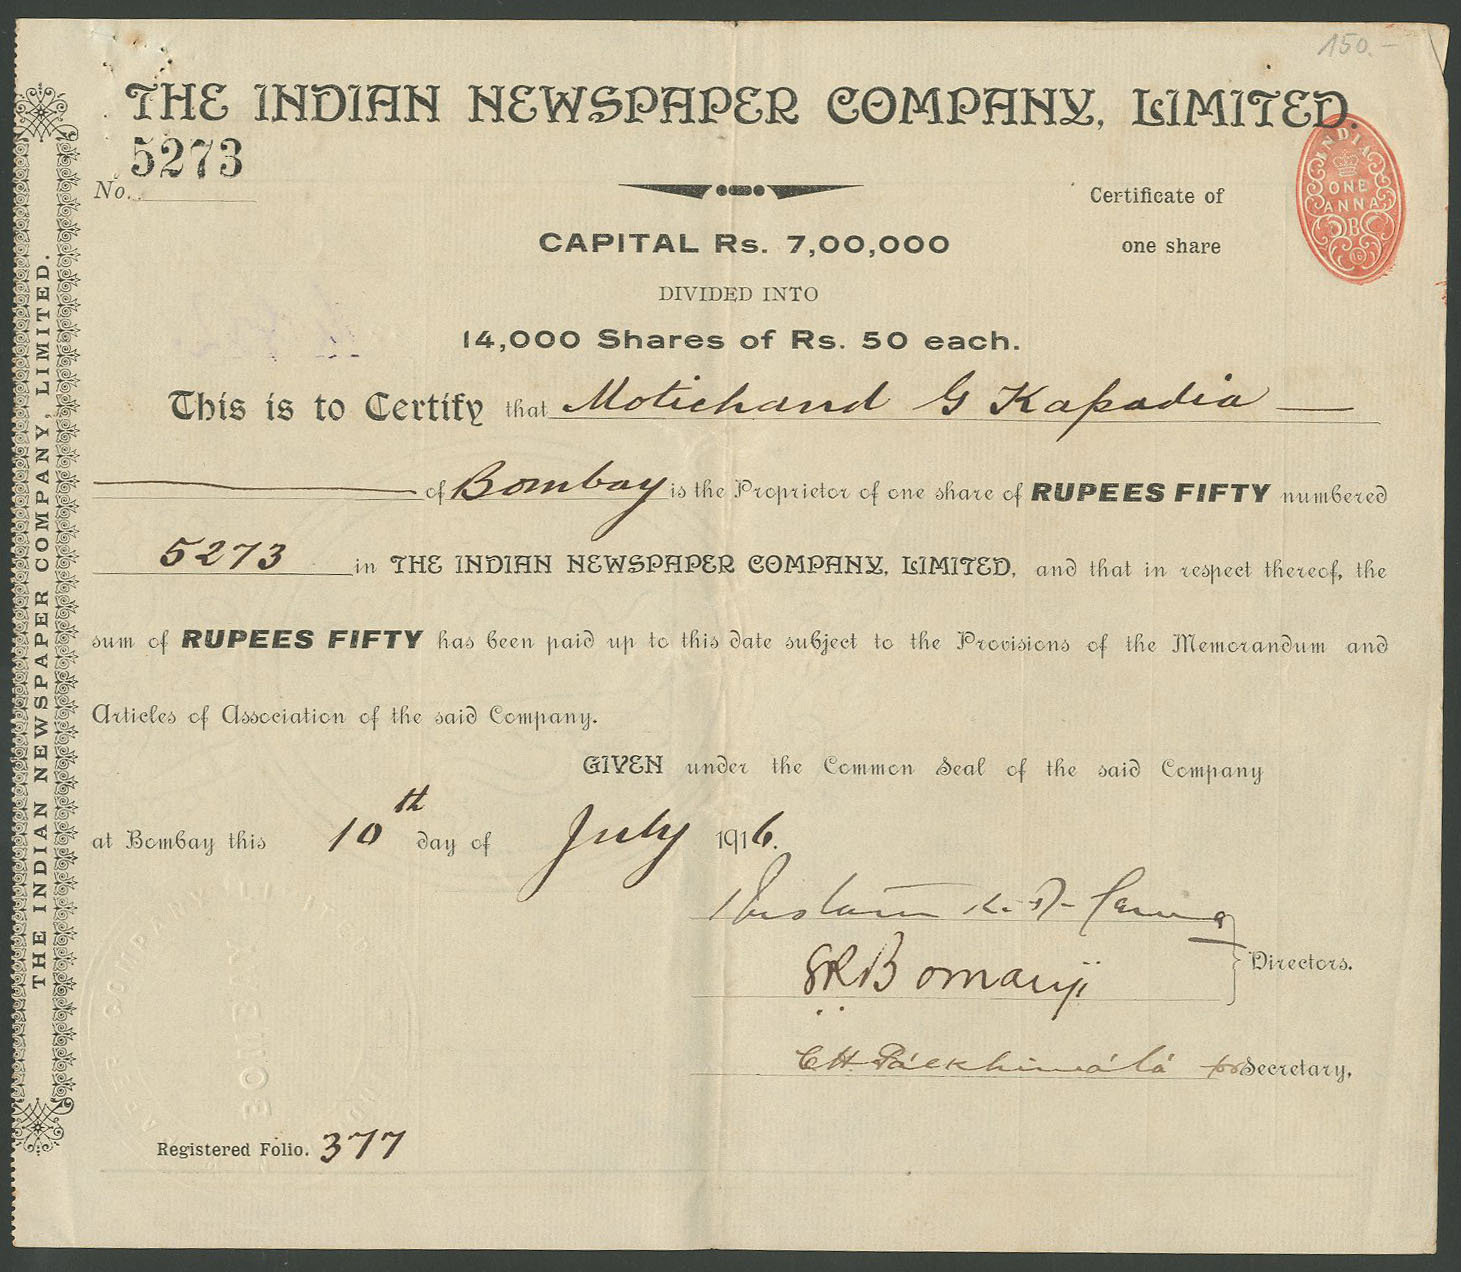 150.-
THE INDIAN NEWSPAPER COMPANY, LIMITED.
No. 5273
INDIA
ONE
ANNA
Certificate of
one share
CAPITAL Rs. 7,00,000
DIVIDED INTO
14,000 Shares of Rs. 50 each.
This is to Certify that Motichand G Kapadia
of Bombay is the Proprietor of one share of RUPEES FIFTY numbered
5273 in THE INDIAN NEWSPAPER COMPANY, LIMITED, and that in respect thereof, the
sum of RUPEES FIFTY has been paid up to this date subject to the Provisions of the Memorandum and
Articles of Association of the said Company.
GIVEN under the Common Seal of the said Company
at Bombay this 10th day of July 1916.
Rustom K. R. Cama
SR Bomanji
Directors.
C H pr Secretary,
Registered Folio. 377
THE INDIAN NEWSPAPER COMPANY, LIMITED.